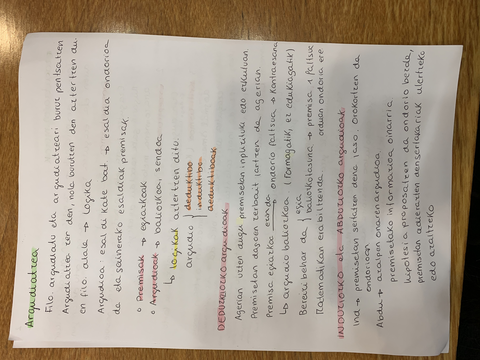 Argudiatzea
Filo. argudiatu eta argudiatzeari buruz pentsatzen
Argudiatzea zer den, nola burutzen den aztertzen du
en filo. atala → Logika
Argudioa esaldi kate bat → esaldia ondorioa
da eta gainerako esaldiak premisak
• Premisak → egiazkoak
• Argudioak → baliozkoa, sendoa
↳ logikak aztertzen ditu
argudio } deduktibo
induktibo
abduktiboak
DEDUKZIOZKO argudioak
Agerian uzten dugu premisetan inplizituki edo ezkutuan
Premisetan dagoen zerbait jartzen da agerian
Premisa egiazkoa eta ondorio faltsua → kontraesana
↳ argudio baliozkoa (formagatik, ez edukiagatik)
Bereizi behar da, egia, baliozkotasuna → premisa 1 faltsua
Matematikan eta biltzen da orduan ondorio ere
INDUKZIOZKO eta ABDUKZIOZKO argudioak
Ind → premisetan soilik den jaso orokortzen da
ondorioan
Abdu → azalpen onaren argudioa
premisetako informazioa oinarria
hipotesia proposatzen da ondorio bezala,
premisetan adierazten den ulertzeko
edo azaltzeko